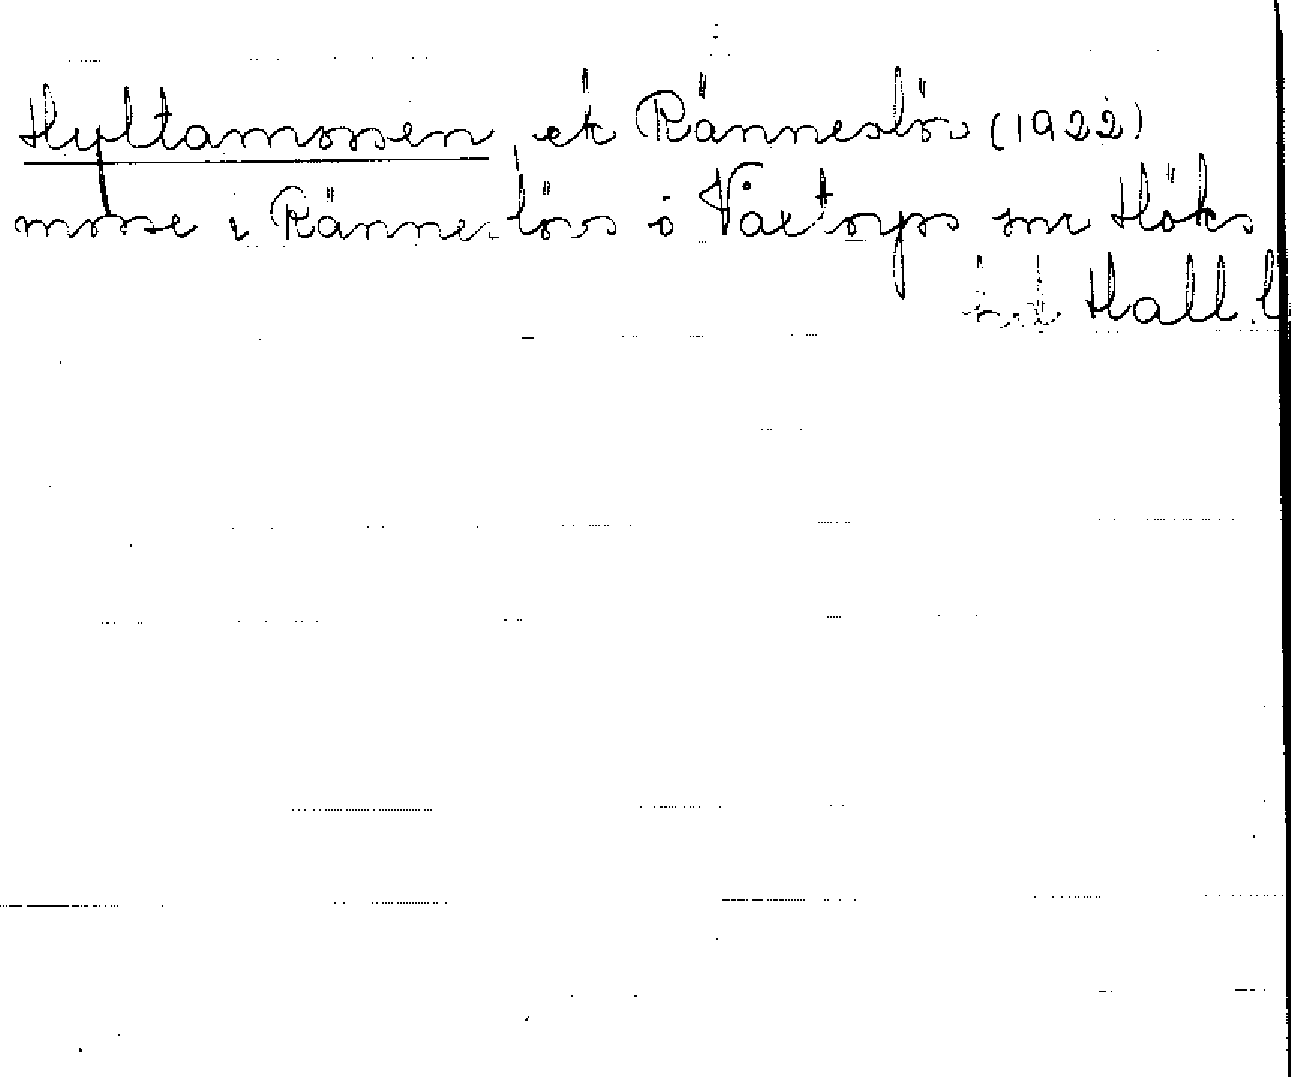 Hyltamossen ek Ränneslöv (1922)
mosse i Ränneslövs o Våxtorps snr Höks
hd Hall. l